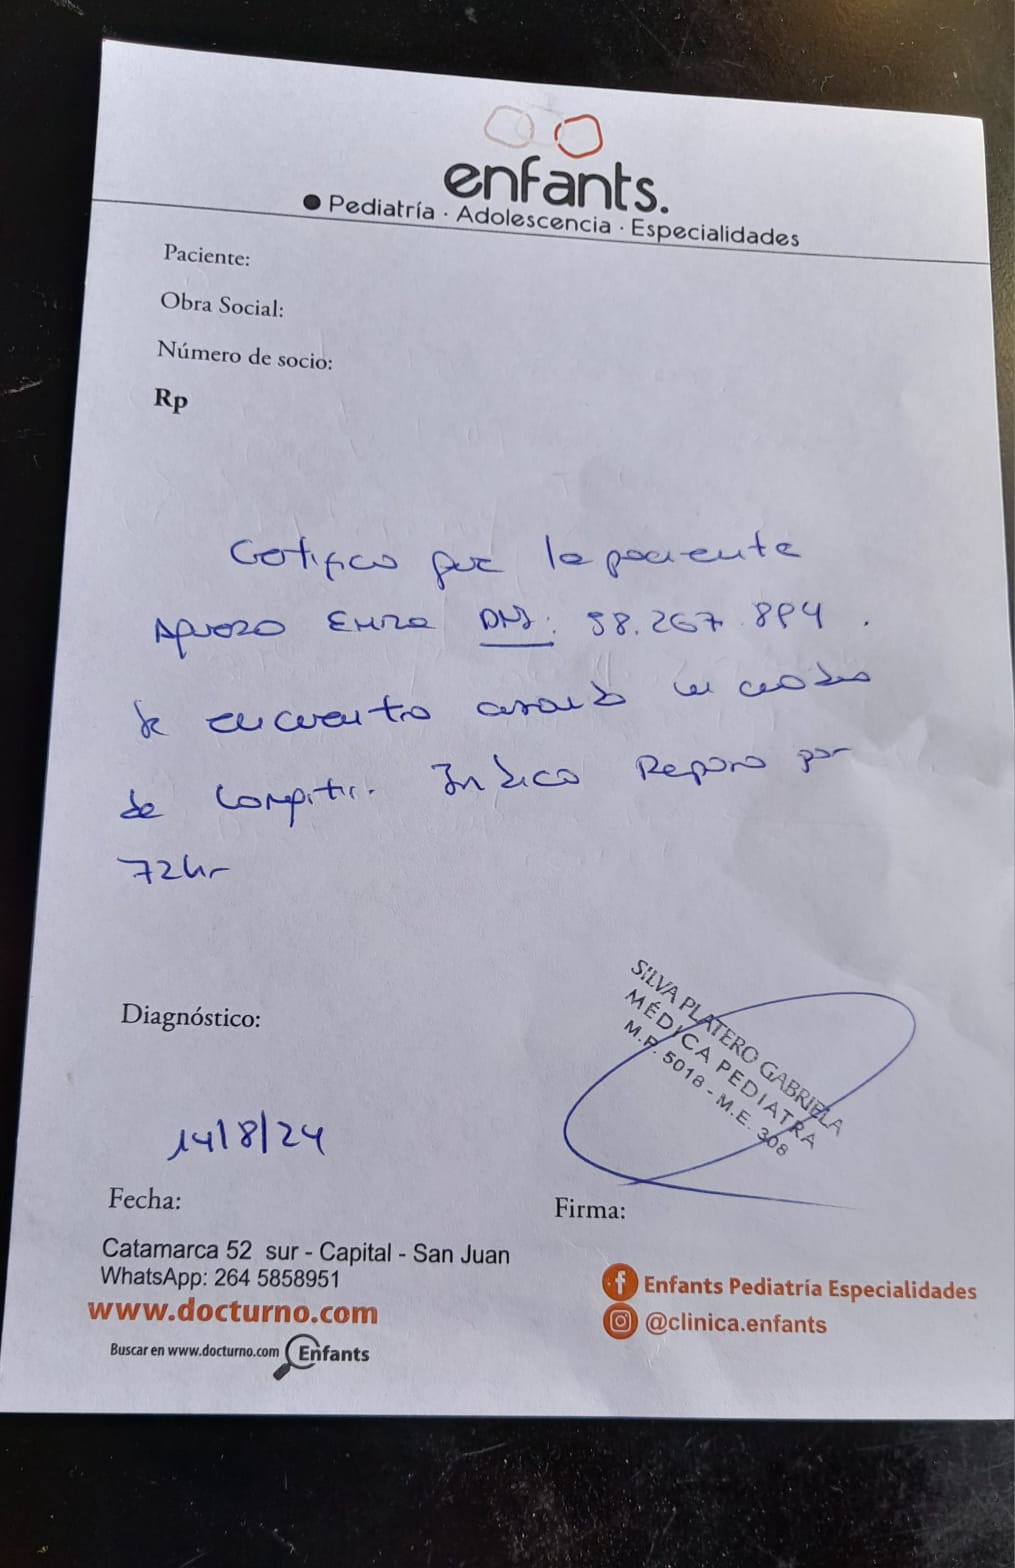 enfants.
Pediatría · Adolescencia · Especialidades
Paciente:
Obra Social:
Número de socio:
Rp
Certifico que la paciente
DNI: 58.267.894.
se encuentra cursando un cuadro
de Indico Reposo por
72hr
SILVA PLATERO GABRIELA
MÉDICA PEDIATRA
M.P. 5018 - M.E. 308
Diagnóstico:
14/8/24
Fecha:
Firma:
Catamarca 52 sur - Capital - San Juan
WhatsApp: 264 5858951
www.docturno.com
Buscar en www.docturno.com Enfants
Enfants Pediatría Especialidades
@clinica.enfants